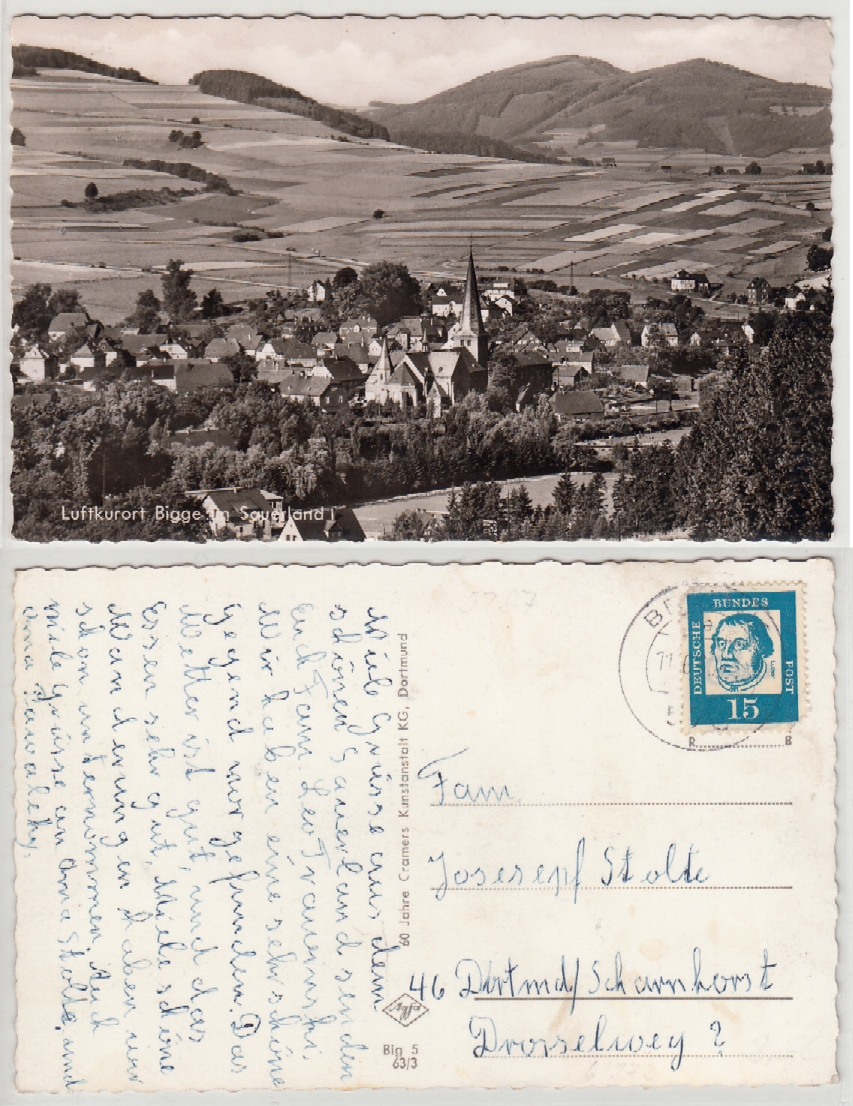 Luftkurort Bigge im Sauerland
Viele Grüsse aus dem
schönen Sauerland senden
Euch Fam. Leo
Wir haben eine sehr schöne
Gegend vorgefunden. Das
Wetter ist gut, und das
Essen sehr gut, Viele schöne
Wanderungen haben wir
schon unternommen. Auch
viele Grüsse an Oma Stolte, und
Oma
60 Jahre Cramers Kunstanstalt KG, Dortmund
Agfa
Big 5
63/3
DEUTSCHE
BUNDES
POST
15
R B
Fam.
Josesepf Stolte
46 Dortmd/Scharnhorst
Drosselweg 2